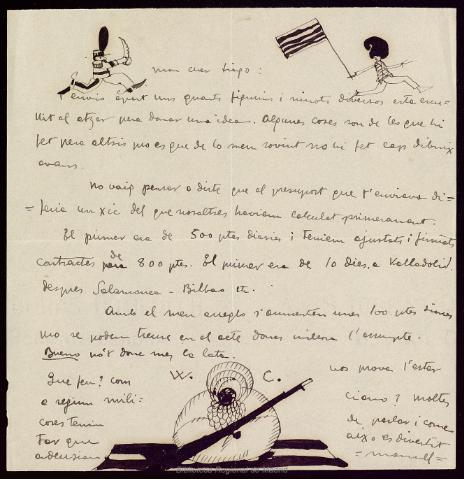 mon cher
T'envio apart uns quants figurins i ninots diversos esta
al atzar per donar una idea. Algunes coses son de les que hi
fet per altris mes que de lo meu sovint no hi fet cap dibuix
avans.
No vaig pensar a dirte que el presuport que t'enviava di=
=feria un xic del que nosaltres haviem calculat primerament.
El primer era de 500 ptes diaries i teniem ajustats i firmats
contractes de 800 ptes. El primer era de 10 dies, a Valladolid
despres Salamanca - Bilbao etc.
Amb el meu arreglo s'aumenten unes 100 ptes diaries
no se podem treure en el acte dones l'assumpte.
Bueno no't dono mes la lata.
W. C.
Que feu? com
a regim mili=
coses tenim
Per que
nos prova l'estar
ciano? moltes
de parlar i com
aixo es divertit
=manuel=
Biblioteca Regional de Madrid